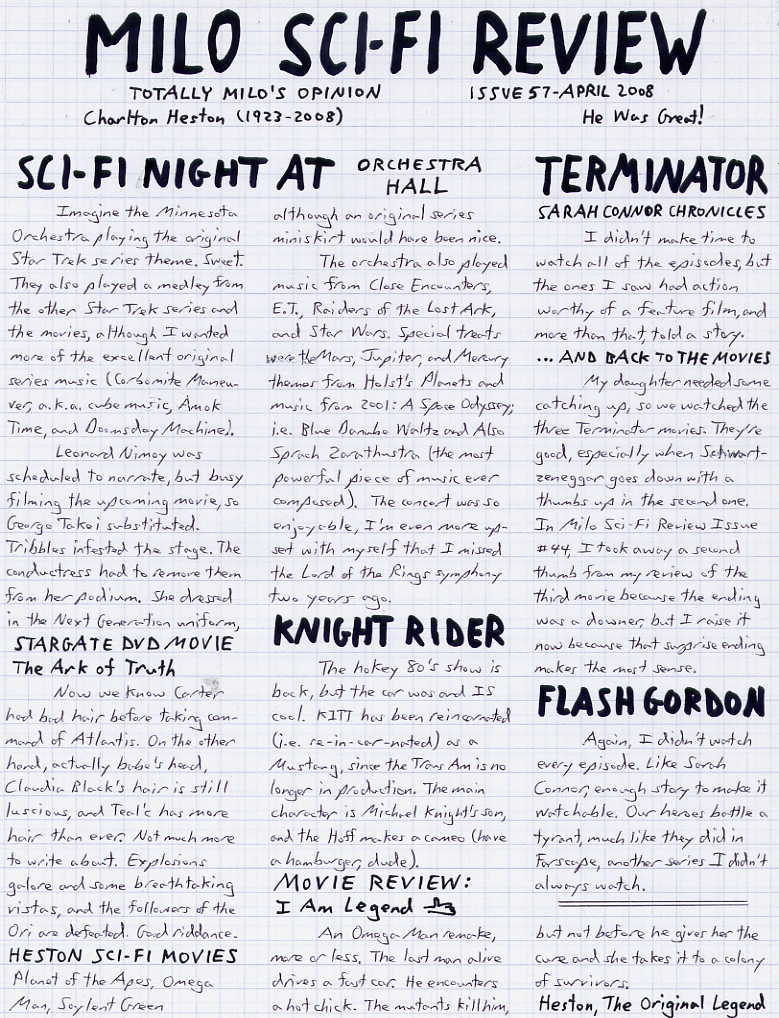 MILO SCI-FI REVIEW
TOTALLY MILO'S OPINION
ISSUE 57-APRIL 2008
Charlton Heston (1923-2008)
He Was Great!
SCI-FI NIGHT AT ORCHESTRA
HALL
Imagine the Minnesota
Orchestra playing the original
Star Trek series theme. Sweet.
They also played a medley from
the other Star Trek series and
the movies, although I wanted
more of the excellent original
series music (Corbomite Maneu-
ver, a.k.a. cube music, Amok
Time, and Doomsday Machine).
Leonard Nimoy was
scheduled to narrate, but busy
filming the upcoming movie, so
George Takei substituted.
Tribbles infested the stage. The
conductress had to remove them
from her podium. She dressed
in the Next Generation uniform,
although an original series
miniskirt would have been nice.
The orchestra also played
music from Close Encounters,
E.T., Raiders of the Lost Ark,
and Star Wars. Special treats
were the Mars, Jupiter, and Mercury
themes from Holst's Planets and
music from 2001: A Space Odyssey;
i.e. Blue Danube Waltz and Also
Sprach Zarathustra (the most
powerful piece of music ever
composed). The concert was so
enjoyable, I'm even more up-
set with myself that I missed
the Lord of the Rings symphony
two years ago.
STARGATE DVD MOVIE
The Ark of Truth
Now we know Carter
had bad hair before taking com-
mand of Atlantis. On the other
hand, actually babe's head,
Claudia Black's hair is still
luscious, and Teal'c has more
hair than ever. Not much more
to write about. Explosions
galore and some breathtaking
vistas, and the followers of the
Ori are defeated. Good riddance.
HESTON SCI-FI MOVIES
Planet of the Apes, Omega
Man, Soylent Green
KNIGHT RIDER
The hokey 80's show is
back, but the car was and IS
cool. KITT has been reincarnated
(i.e. re-in-car-nated) as a
Mustang, since the Trans Am is no
longer in production. The main
character is Michael Knight's son,
and the Hoff makes a cameo (have
a hamburger, dude).
MOVIE REVIEW:
I Am Legend
An Omega Man remake,
more or less. The last man alive
drives a fast car. He encounters
a hot chick. The mutants kill him,
TERMINATOR
SARAH CONNOR CHRONICLES
I didn't make time to
watch all of the episodes, but
the ones I saw had action
worthy of a feature film, and
more than that, told a story.
...AND BACK TO THE MOVIES
My daughter needed some
catching up, so we watched the
three Terminator movies. They're
good, especially when Schwart-
zeneggar goes down with a
thumbs up in the second one.
In Milo Sci-Fi Review Issue
#44, I took away a second
thumb from my review of the
third movie because the ending
was a downer, but I raise it
now because that surprise ending
makes the most sense.
FLASH GORDON
Again, I didn't watch
every episode. Like Sarah
Connor, enough story to make it
watchable. Our heroes battle a
tyrant, much like they did in
Farscape, another series I didn't
always watch.
but not before he gives her the
cure and she takes it to a colony
of survivors.
Heston, The Original Legend